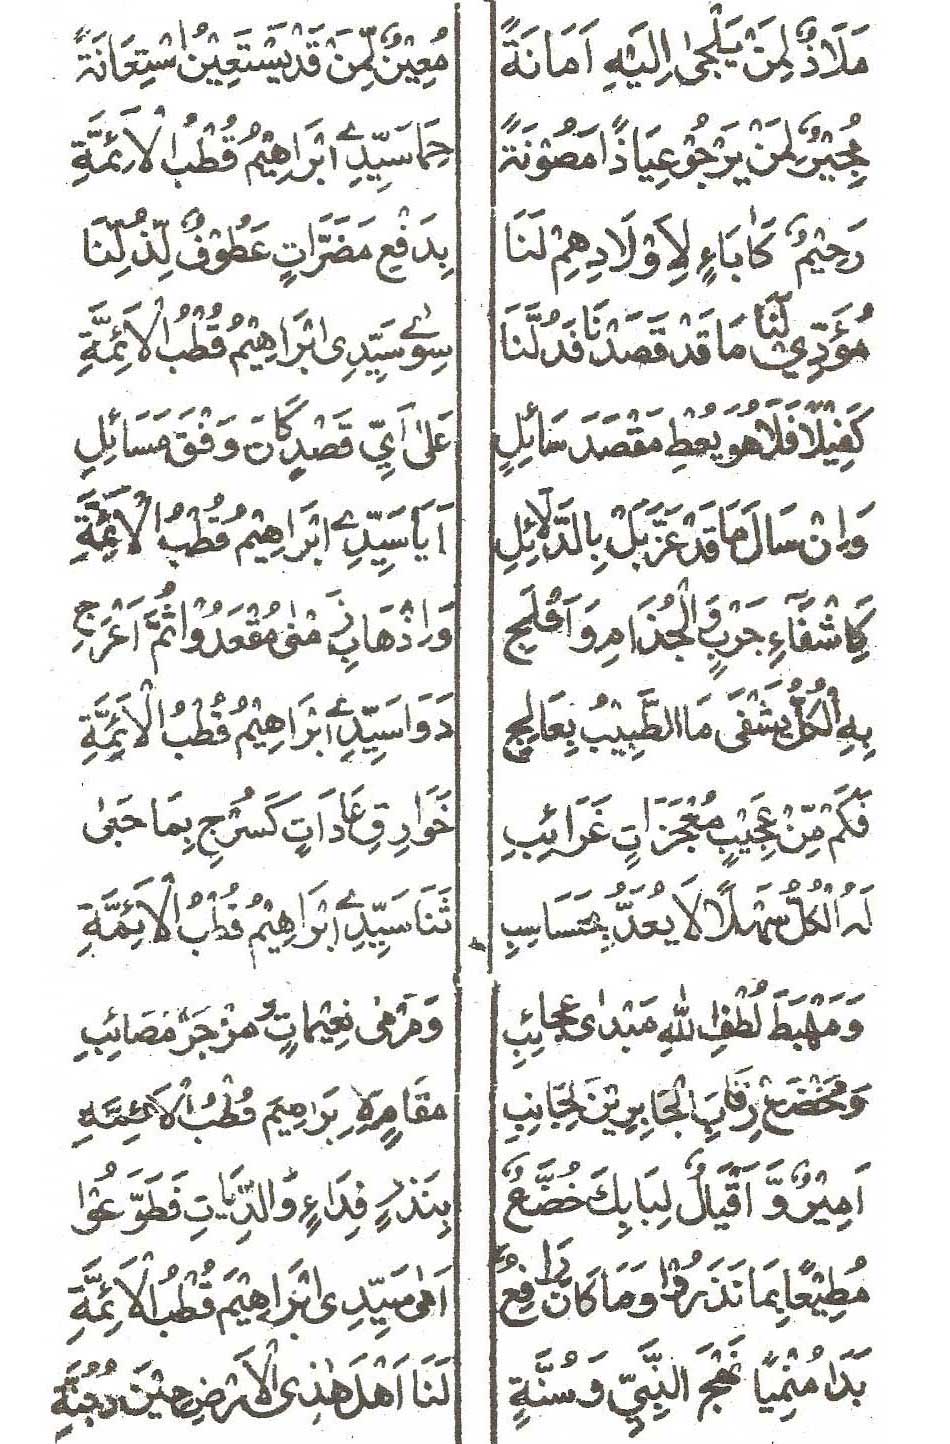 مَلَاذٌ لِمَنْ يَلْجٰى اِلَيْهِ اَمَانَةً مُعِيْنٌ لِّمَنْ قَدْ يَسْتَعِيْنُ اسْتِعَانَةً
مُجِيْرٌ لِمَنْ يَرْجُوْ عِيَاذًا مَصُوْنَةً حِمَا سَيِّدِىْ اِبْرَاهِيْمُ قُطْبُ الْاَئِمَّةِ
رَحِيْمٌ كَاٰبَاءٍ لِاَوْلَادِهِمْ لَنَا بِدَفْعِ مَضَرَّاتٍ عَطُوْفٌ لِّذُلِّنَا
مُؤَدِّيْ لَنَا مَا قَدْ قَصَدْنَا فَدُلَّنَا سِوٰى سَيِّدِى اِبْرَاهِيْمُ قُطْبُ الْاَئِمَّةِ
كَفِيْلًا فَلَاهُوَ يُعْطِ مَقْصَدَ سَائِلٍ عَلٰى اَيِّ قَصْدٍ كَانَ وَفْقَ مَسَائِلِ
وَاِنْ سَالَ مَا قَدْ عَزَّ بَلْ بِالدَّلَائِلِ اَيَا سَيِّدِىْ اِبْرَاهِيْمُ قُطْبُ الْاَئِمَّةِ
كَاشْفَاءِ جَرْبٍ وَالْجُذَامِ وَاَفْلَجِ وَاِذْهَابِ زَمْنٰى مُقْعَدُوْا ثُمَّ اَعْرَجِ
بِهِ الْكُلُّ يَشْفٰى مَا الطَّبِيْبُ بِعَالِجِ دَوَا سَيِّدِىْ اِبْرَاهِيْمُ قُطْبُ الْاَئِمَّةِ
فَكَمْ مِّنْ عَجِيْبٍ مُعْجَزَاتٍ غَرَائِبِ خَوَارِقِ عَادَاتٍ كَسُرْجٍ بِمَا حَبٰى
لَهُ الْكُلُّ سَهْلًا لَا يُعَدُّ بِحَسَاسِبِ ثَنَا سَيِّدِىْ اِبْرَاهِيْمُ قُطْبُ الْاَئِمَّةِ
وَمَهْبَطَ لُطْفِ اللهِ مَبْدٰى عَجَائِبِ وَمَرْمٰى نِعِيْمَاتٍ وَمَزْجَرَ مَصَائِبِ
وَمَخْضَعْ رِقَابَ الْجَابِرِيْنَ لِجَانِبِ مَقَامِ اِبْرَاهِيْمَ قُطْبُ الْاَئِمَّةِ
اَمِيْرٌ وَّاَقْيَالٌ لِبَابِكَ خُضَّعٌ بِنَذْرٍ فِدَاءٍ وَالدِّيَاتِ فَطَوَّعُوْا
مُطِيْعًا بِمَا نَذَرُوْا وَمَا كَانَ رَافِعٌ اَمٰى سَيِّدِى اِبْرَاهِيْمَ قُطْبُ الْاَئِمَّةِ
بَدَا مُنْمِيًا نَهْجَ النَّبِيِّ وَسُنَّةٍ لَنَا اَهْلَ هٰذِى الْاَرْضِ حِيْنَ دُجُنَّةِ